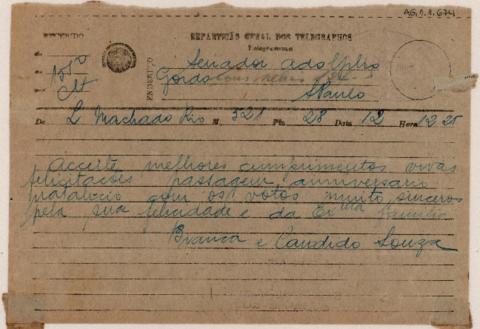 AG.1.1.674
RECEBIDO
REPARTIÇÃO GERAL DOS TELEGRAPHOS
Telegramma
ENDEREÇO
Senador Adolpho
Gordo
S Paulo
De L Machado Rio N. 321 Pls 28 Data 12 Hora 12 25
Acceite melhores cumprimentos vivas
felicitações passagem anniversario
natalicio com os votos muito sinceros
pela sua felicidade e da Exma familia
Branca e Candido Souza